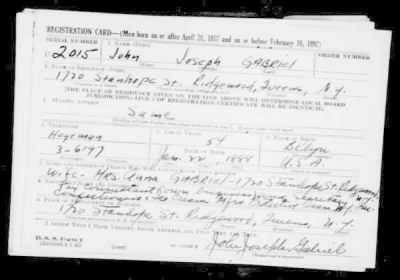 REGISTRATION CARD—(Men born on or after April 28, 1877 and on or before February 16, 1897)
SERIAL NUMBER 1. NAME (Print) ORDER NUMBER
U 2015 John Joseph GABRIEL
2. PLACE OF RESIDENCE (Print)
1720 Stanhope St. Ridgewood, Queens, N.Y.
[THE PLACE OF RESIDENCE GIVEN ON THE LINE ABOVE WILL DETERMINE LOCAL BOARD
JURISDICTION; LINE 2 OF REGISTRATION CERTIFICATE WILL BE IDENTICAL]
3. MAILING ADDRESS
Same
4. TELEPHONE 5. AGE IN YEARS 6. PLACE OF BIRTH
Hegeman 54 Bklyn
3-6197 DATE OF BIRTH
Jan. 22, 1888 U.S.A.
Wife- Mrs. Anna GABRIEL-1720 Stanhope St. Ridgewood N.Y.
Ice Cream Mfrs
1720 Stanhope St. Ridgewood, Queens, N.Y.
I AFFIRM THAT I HAVE VERIFIED ABOVE ANSWERS AND THAT THEY ARE TRUE.
D. S. S. Form 1
(Revised 4-1-42)
John Joseph Gabriel